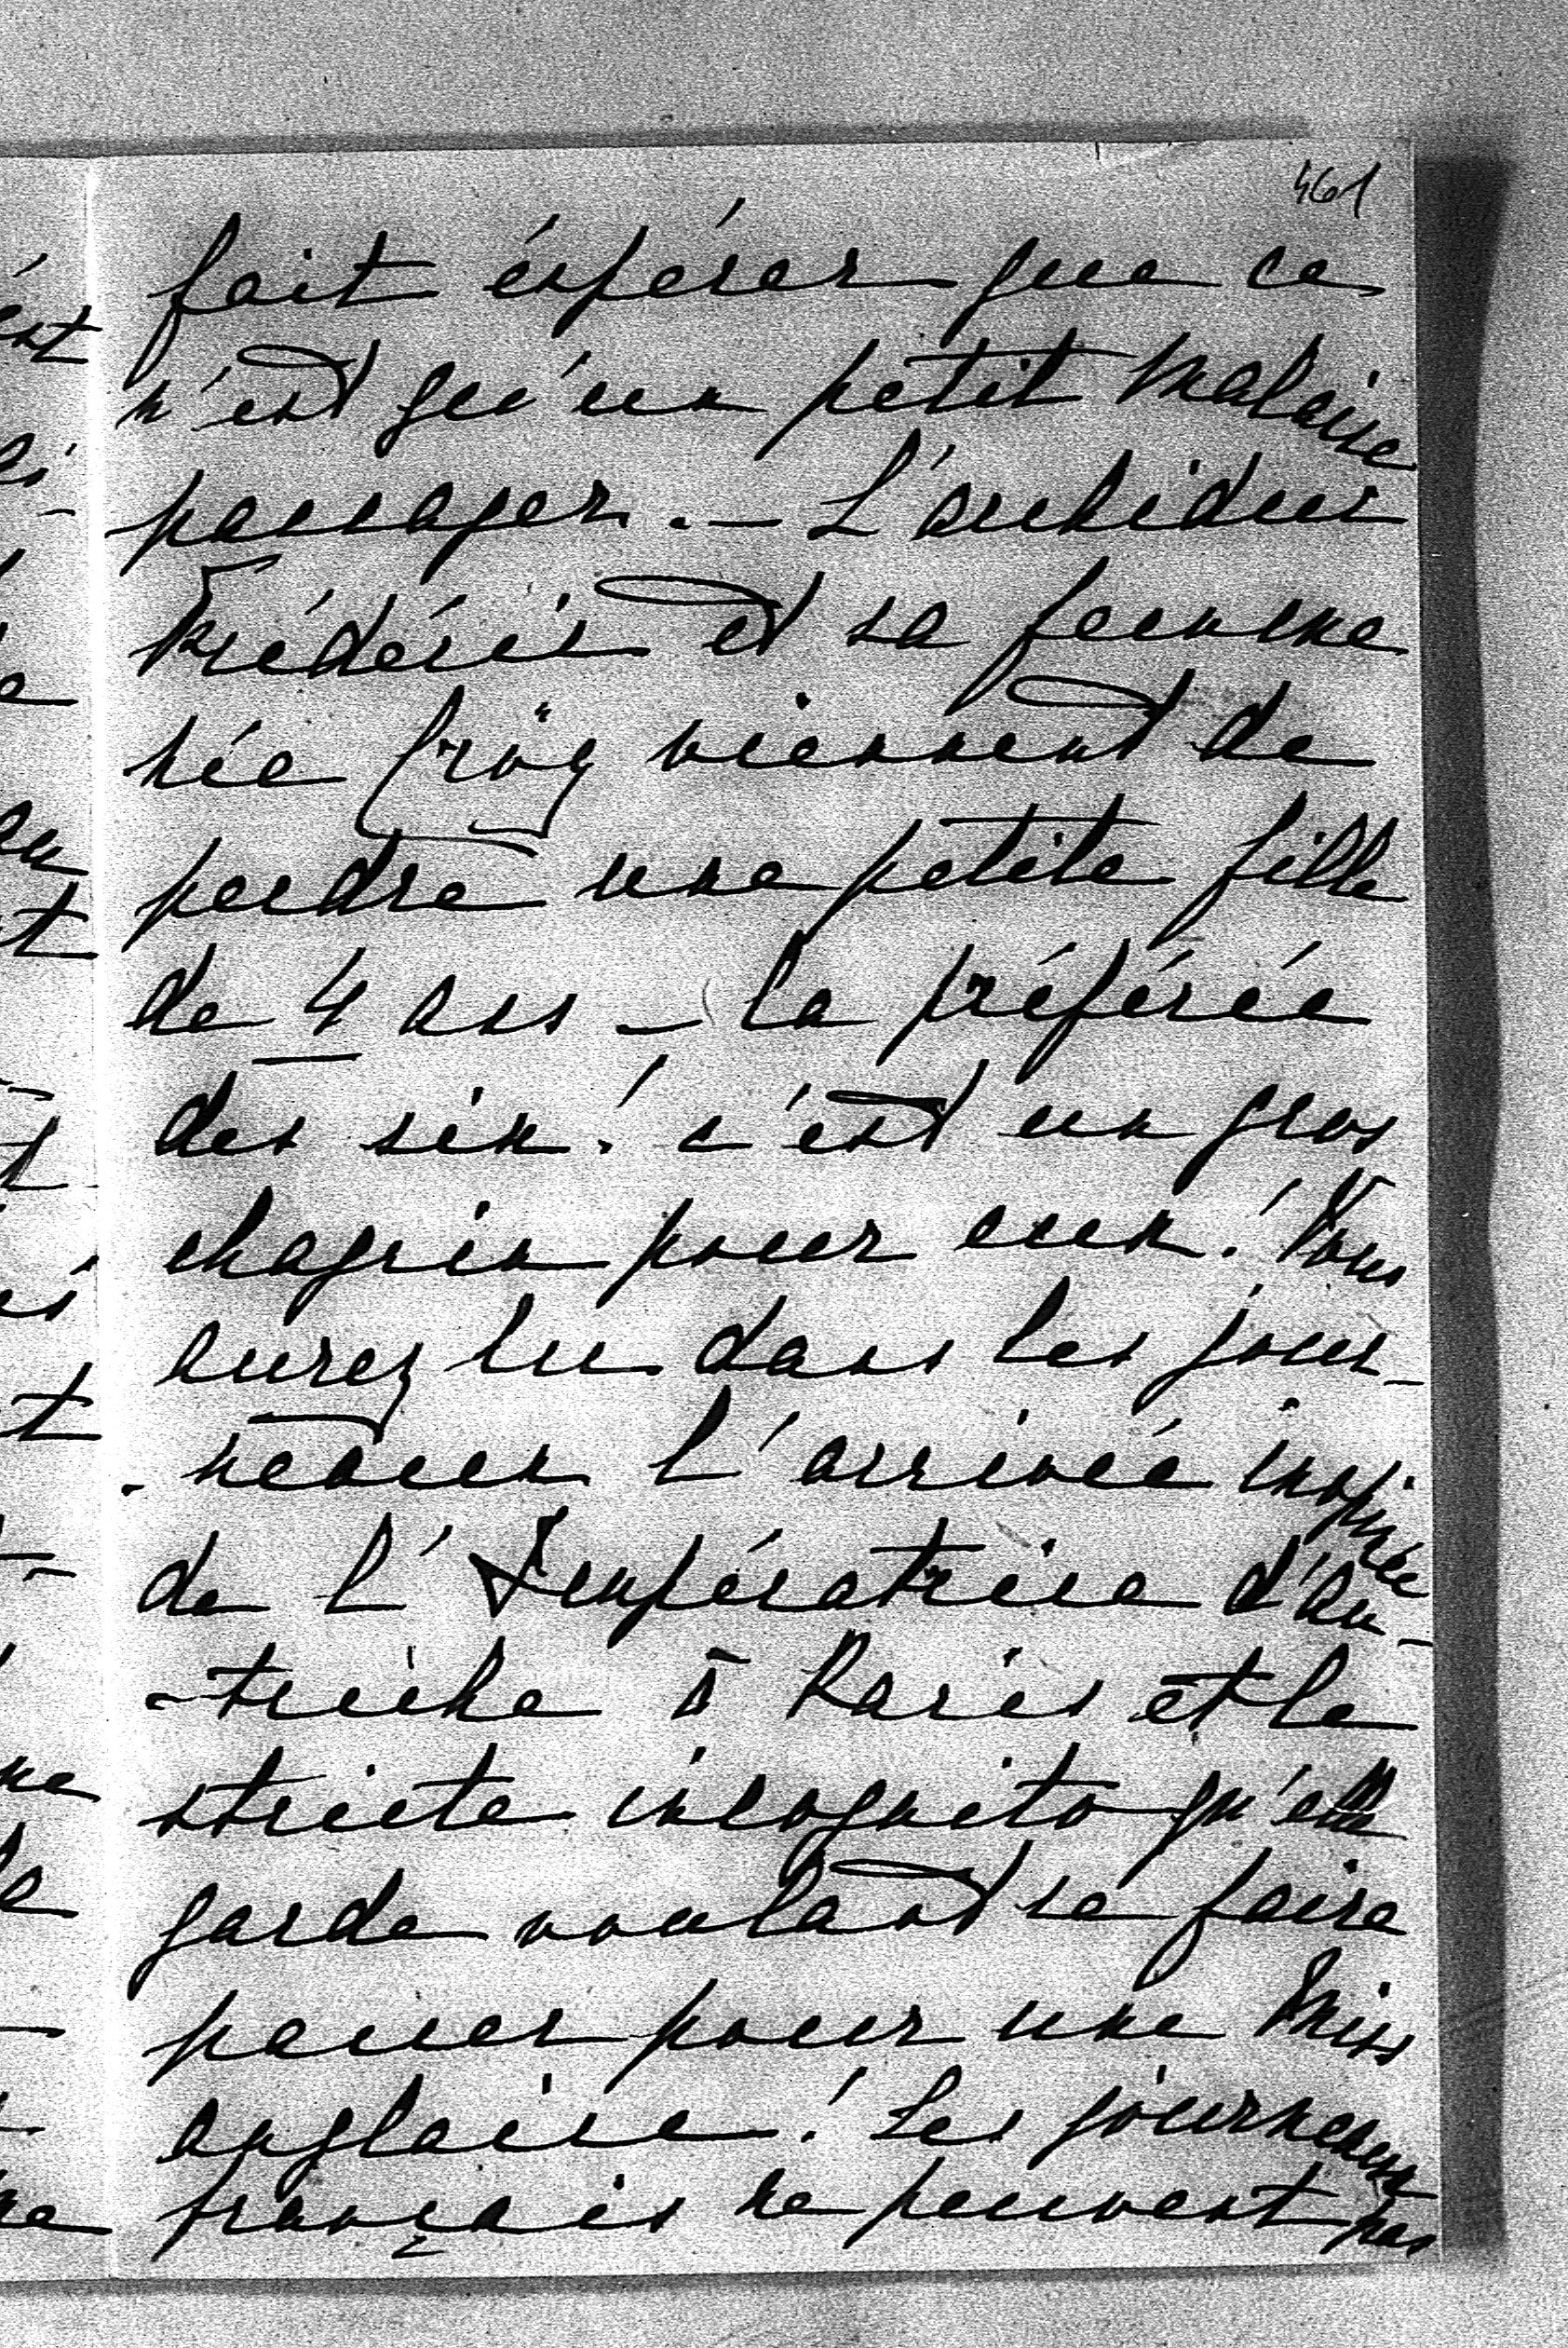 461
fait éspérer que ce
n'est qu'un petit malaise
passager. — L'archiduc
Frédéric et sa femme
née Croÿ viennent de
perdre une petite fille
de 4 ans — la préférée
des six! c'est un gros
chagrin pour eux! Vous
aurez lu dans les jour-
-neaux l'arrivée inopinée
de l'Impératrice d'Au-
-triche à Paris et le
stricte incognito qu'elle
garde voulant se faire
passer pour une Miss
anglaise! Les journeaux
français ne peuvent pas